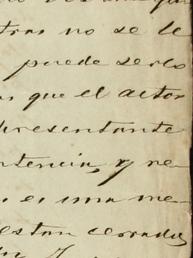 tras no se le
puede serlo
que el actor
presentante
tencia, y re-
es una me-
estan cerradas